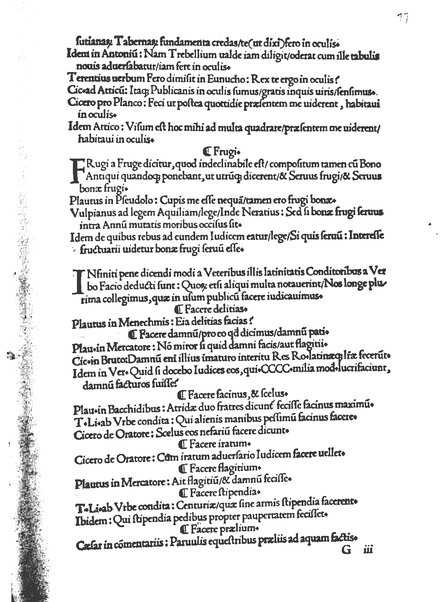 77
futianaꝝ Tabernaꝝ fundamenta credas/te(ut dixi)fero in oculis.
Idem in Antoniū: Nam Trebellium ualde iam diligit/oderat cum ille tabulis
nouis aduersabatur/iam fert in oculis.
Terentius uerbum Fero dimisit in Eunucho: Rex te ergo in oculis?
Cic.ad Atticū: Itaqꝫ Publicanis in oculis sumus/gratis inquis uiris/sensimus.
Cicero pro Planco: Feci ut postea quottidie præsentem me uiderent, habitaui
in oculis.
Idem Attico: Visum est hoc mihi ad multa quadrare/præsentem me uiderent/
habitaui in oculis.
¶ Frugi.
FRugi a Fruge dicitur, quod indeclinabile est/ compositum tamen cū Bono
Antiqui quandoqꝫ ponebant, ut utrūqꝫ dicerent/& Seruus frugi/& Seruus
bonæ frugi.
Plautus in Pseudolo: Cupis me esse nequā/tamen ero frugi bonæ.
Vulpianus ad legem Aquiliam/lege/Inde Neratius: Sed si bonæ frugi seruus
intra Annū mutatis moribus occisus sit.
Idem de quibus rebus ad eundem Iudicem eatur/lege/Si quis seruū: Interesse
fructuarii uidetur bonæ frugi seruū esse.
INfiniti pene dicendi modi a Veteribus illis latinitatis Conditoribus a Ver
bo Facio deducti sunt: Quoꝝ etsi aliqui multa notauerint/Nos longe plu,
rima collegimus, quæ in usum publicū facere iudicauimus.
¶ Facere delitias.
Plautus in Menechmis: Eia delitias facias?
¶ Facere damnū/pro eo qd dicimus/damnū pati.
Plau.in Mercatore: Nō miror si quid damni facis/aut flagitii.
Cic.in Bruto: Damnū eni illius imaturo interitu Res Ro.latinæqꝫ lræ fecerūt.
Idem in Ver. Quid si docebo Iudices eos, qui.CCCC.milia mod.lucrifaciunt,
damnū facturos fuisse?
¶ Facere facinus, & scelus.
Plau.in Bacchidibus: Atridæ duo fratres dicunt fecisse facinus maximū.
T.Li.ab Vrbe condita: Qui alienis manibus pessimū facinus facere.
Cicero de Oratore: Scelus eos nefariū facere dicunt.
¶ Facere iratum.
Cicero de Oratore: Cum iratum aduersario Iudicem facere uellet.
¶ Facere flagitium.
Plautus in Mercatore: Ait flagitiū/& damnū fecisse.
¶ Facere stipendia.
T.Li.ab Vrbe condita: Centuriæ/quæ sine armis stipendia facerent.
Ibidem: Qui stipendia pedibus propter paupertatem fecisset.
¶ Facere prælium.
Cæsar in cōmentariis: Paruulis equestribus præliis ad aquam factis.
G iii